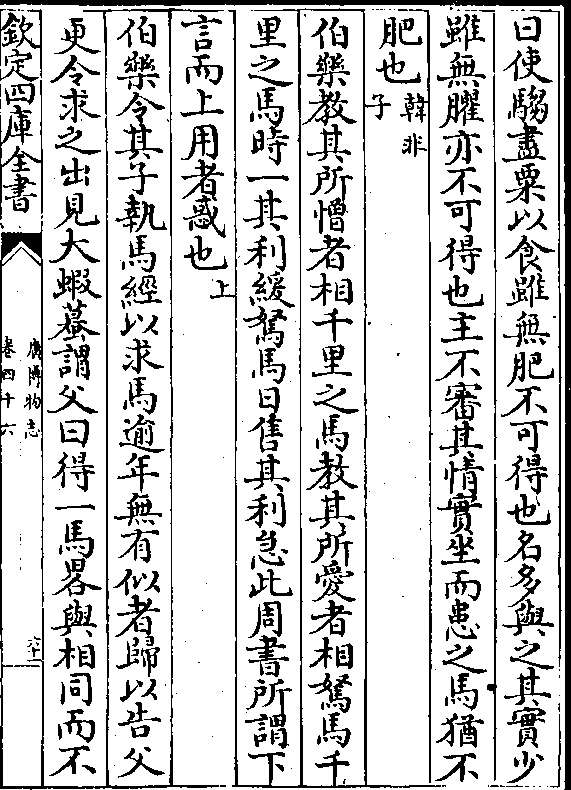 曰使騶盡粟以食雖無肥不可得也名多與之其實少
雖無臞亦不可得也主不審其情實坐而患之馬猶不
肥也韓非子
伯樂教其所憎者相千里之馬教其所愛者相駑馬千
里之馬時一其利緩駑馬日售其利急此周書所謂下
言而上用者惑也上
伯樂令其子執馬經以求馬逾年無有似者歸以告父
更令求之出見大蝦蟇謂父曰得一馬畧與相同而不
欽定四庫全書
廣博物志
卷四十六